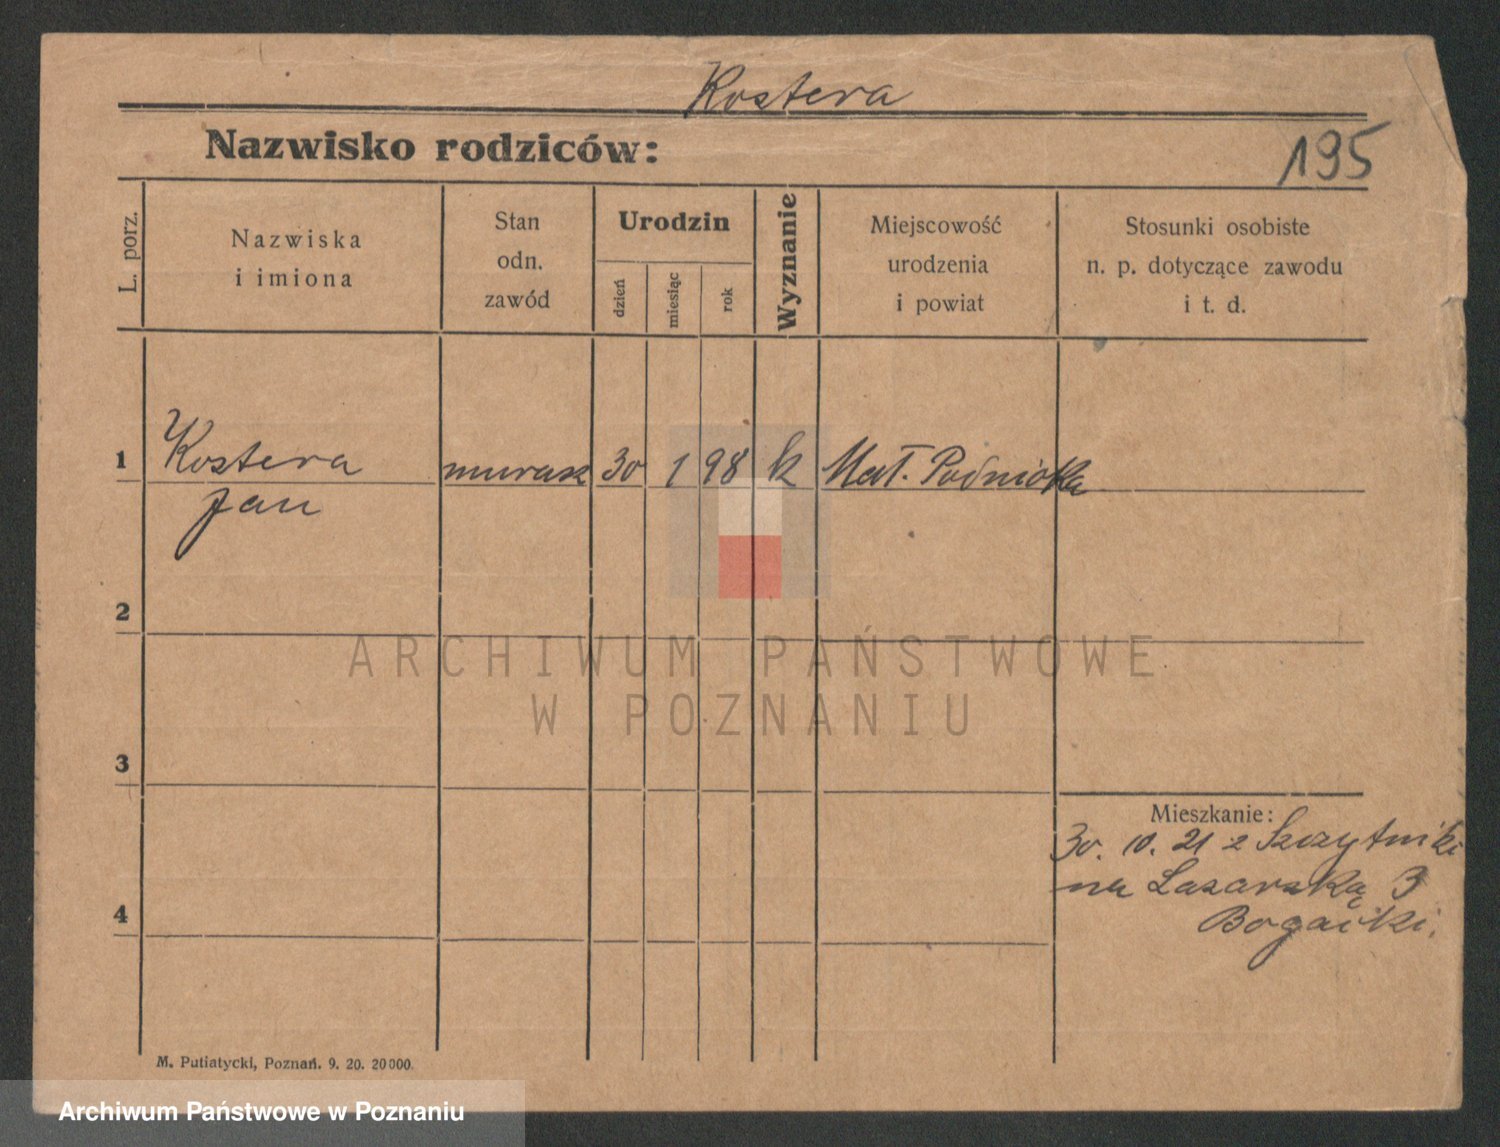 Kostera
Nazwisko rodziców:
195
L. porz.
Nazwiska
i imiona
Stan
odn.
zawód
Urodzin
dzień
miesiąc
rok
Wyznanie
Miejscowość
urodzenia
i powiat
Stosunki osobiste
n. p. dotyczące zawodu
i t. d.
1
Kostera
Jan
murarz
30
1
98
k
2
ARCHIWUM PAŃSTWOWE
W POZNANIU
3
4
Mieszkanie:
30. 10. 21 z Szczytniki
na Lazarską 3
M. Putiatycki, Poznań. 9. 20. 20000.
Archiwum Państwowe w Poznaniu